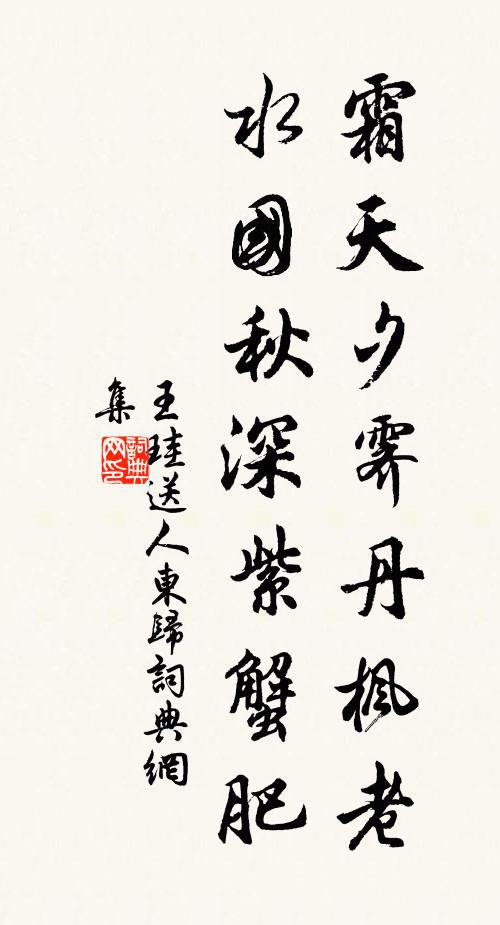 霜天夕霽丹楓老
水國秋深紫蟹肥
王珪送人東歸詞典網
集
詞典
网印